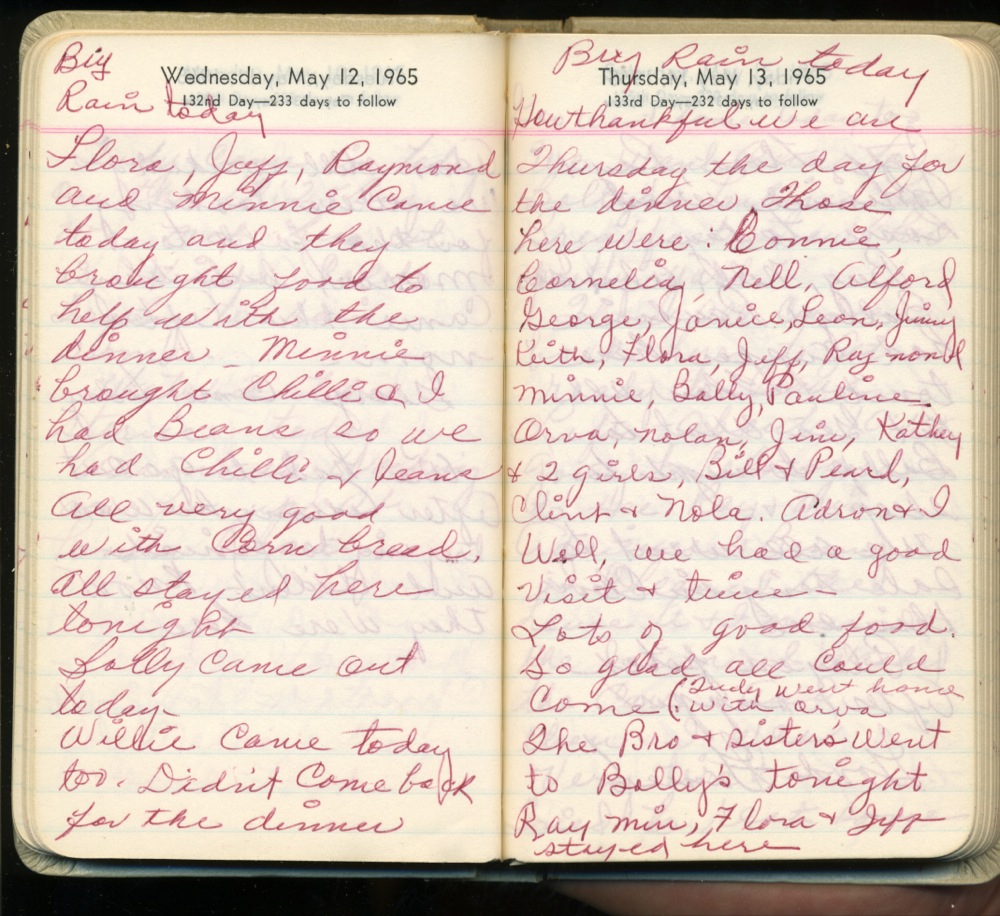 Big
Wednesday, May 12, 1965
Rain today
132nd Day—233 days to follow
Flora, Jeff, Raymond
and Minnie Came
today and they
brought food to
help with the
dinner - Minnie
brought Chilli & I
had Beans so we
had Chilli & beans
All very good
with Corn bread.
All stayed here
tonight
Bolly Came out
today-
Willie Came today
too. Didn't Come back
for the dinner
Big Rain today
Thursday, May 13, 1965
133rd Day—232 days to follow
How thankful we are
Thursday the day for
the dinner. Those
here were: Connie,
Cornelia, Nell, Alford
George, Janice, Leon, Jimmy
Keith, Flora, Jeff, Raymond
Minnie, Bolly, Pauline.
Orva, Nolan, Jim, Kathey
& 2 girls, Bill & Pearl,
Clint & Nola. Adron & I
Well, we had a good
Visit & time-
Lots of good food.
So glad all Could
Come (Judy went home
with Orva
The Bro & Sisters Went
to Bolly's tonight
Ray, Min, Flora & Jeff
stayed here